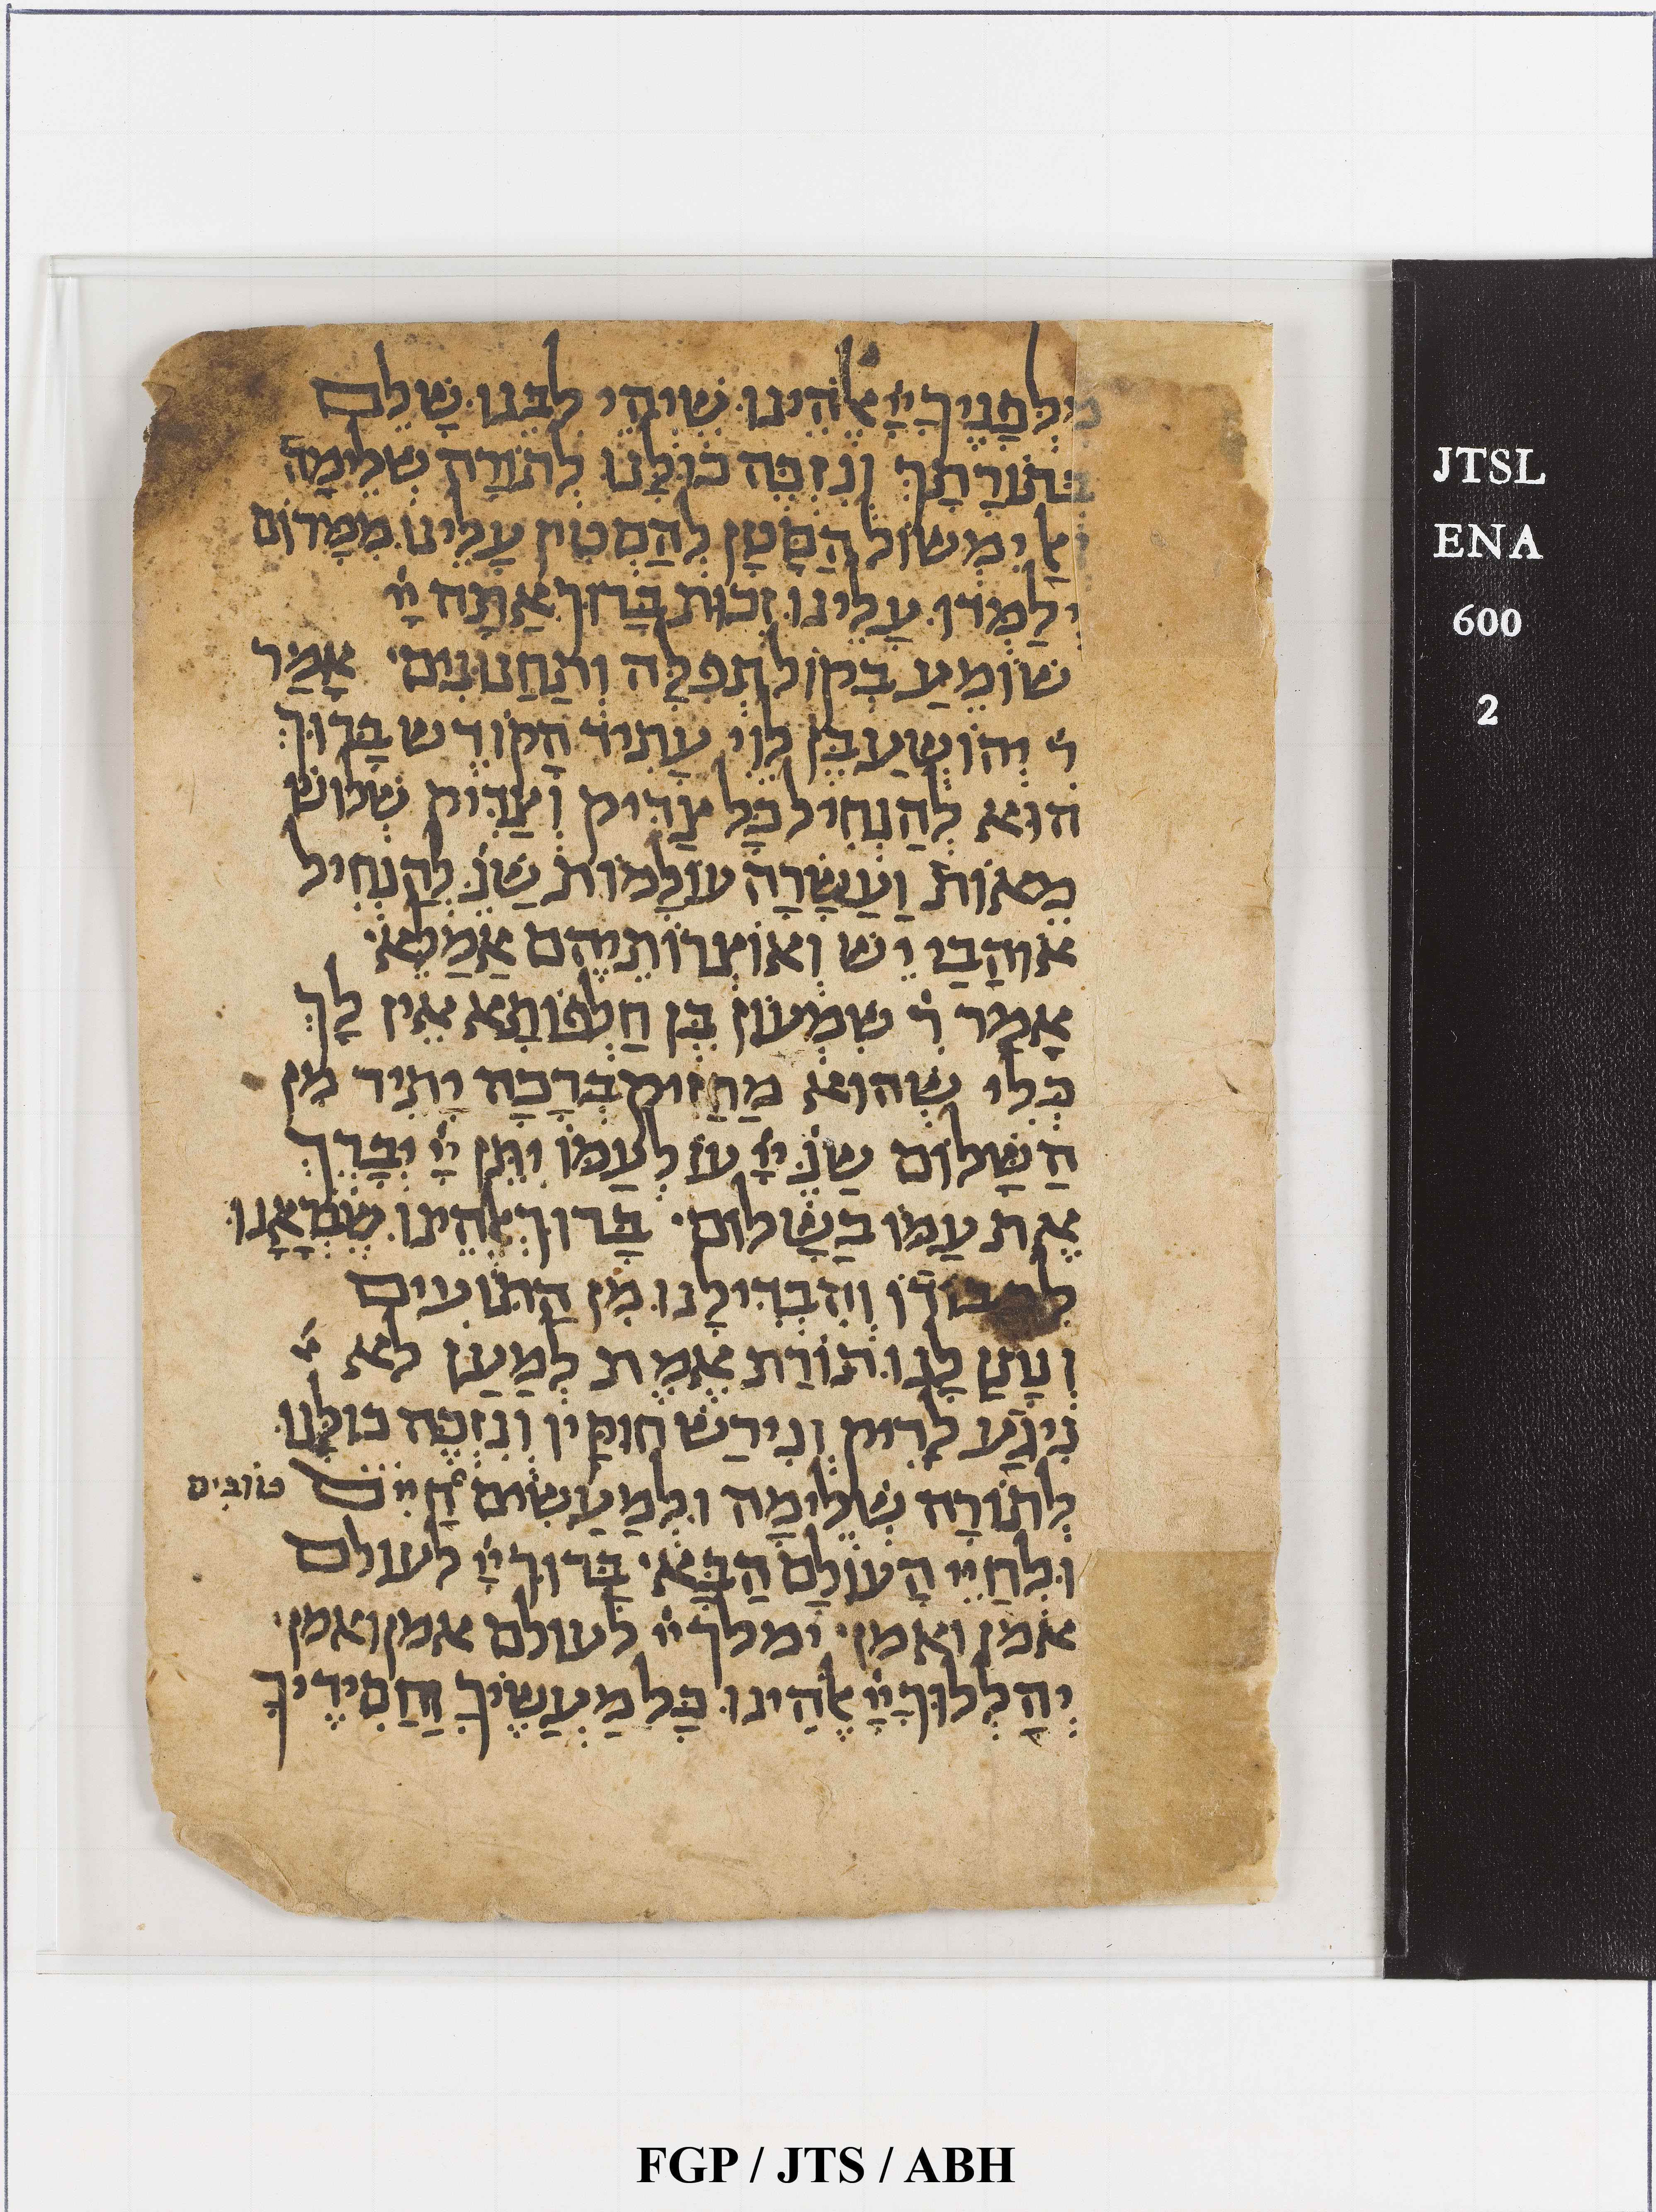 מלפניך ייי אלהינו שיהי לבנו שלם
בתורתך ונזכה כולנו לתורה שלימה
ואל ימשול השטן להסטין עלינו ממרום
ילמדו עלינו זכות ברוך אתה ייי
שומע בקול תפלה ותחנונים׳ אמר
ר׳ יהושע בן לוי עתיד הקודש ברוך
הוא להנחיל כל צדיק וצדיק שלוש
מאות ועשרה עולמות שנ׳ להנחיל
אוהבי יש ואוצרותיהם אמלא׳
אמר ר׳ שמעון בן חלפותא אין לך
כלי שהוא מחזיק ברכה יתיר מן
השלום שנ׳ ייי עז לעמו יתן ייי יברך
את עמו בשלום׳ ברוך אלהינו שבראנו
לכבודו והבדילנו מן התועים
ונתן לנו תורת אמת למען לא
ניגע לריק ונירש חוקיו ונזכה כולנו
לתורה שלימה ולמעשים חיים
טובים
ולחיי העולם הבא׳ ברוך ייי לעולם
אמן ואמן׳ ימלך ייי לעולם אמן ואמן׳
יהללוך ייי אלהינו כל מעשיך וחסידיך
JTSL
ENA
600
2
FGP / JTS / ABH